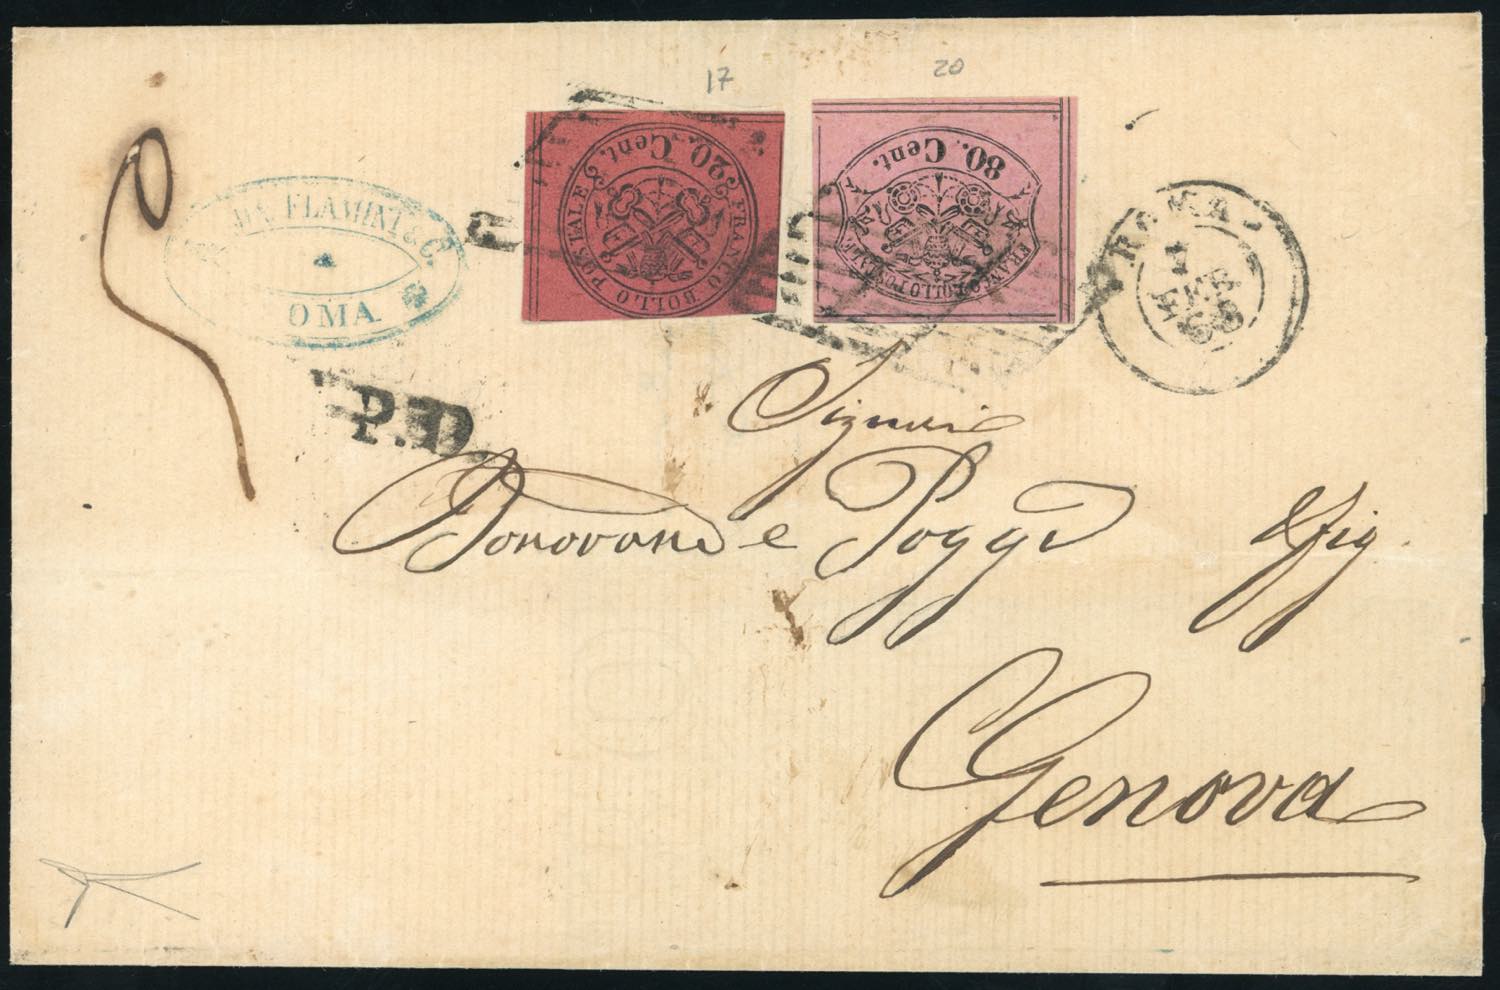 17
20
20 Cent.
FRANCO BOLLO POSTALE
80. Cent.
FRANCO BOLLO POSTALE
FLAMINI & C.
OMA
ROMA
1
FEB
68
P.D.
Signori
Donovan e Poggi
Genova